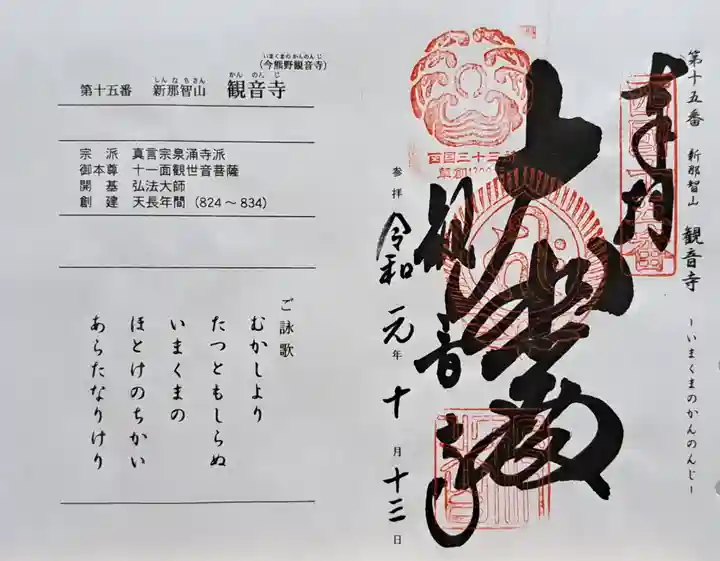 第十五番 新那智山 観音寺 ーいまくまのかんのんじー
奉拝
大悲殿
観音寺
参拝 令和元年十月十三日
西国三十三所
草創1300年
(今熊野観音寺)
いまくまのかんのんじ
第十五番 新那智山 観音寺
しんなちさん かんのんじ
宗派 真言宗泉涌寺派
御本尊 十一面観世音菩薩
開基 弘法大師
創建 天長年間（824～834）
ご詠歌
むかしより
たつともしらぬ
いまくまの
ほとけのちかい
あらたなりけり